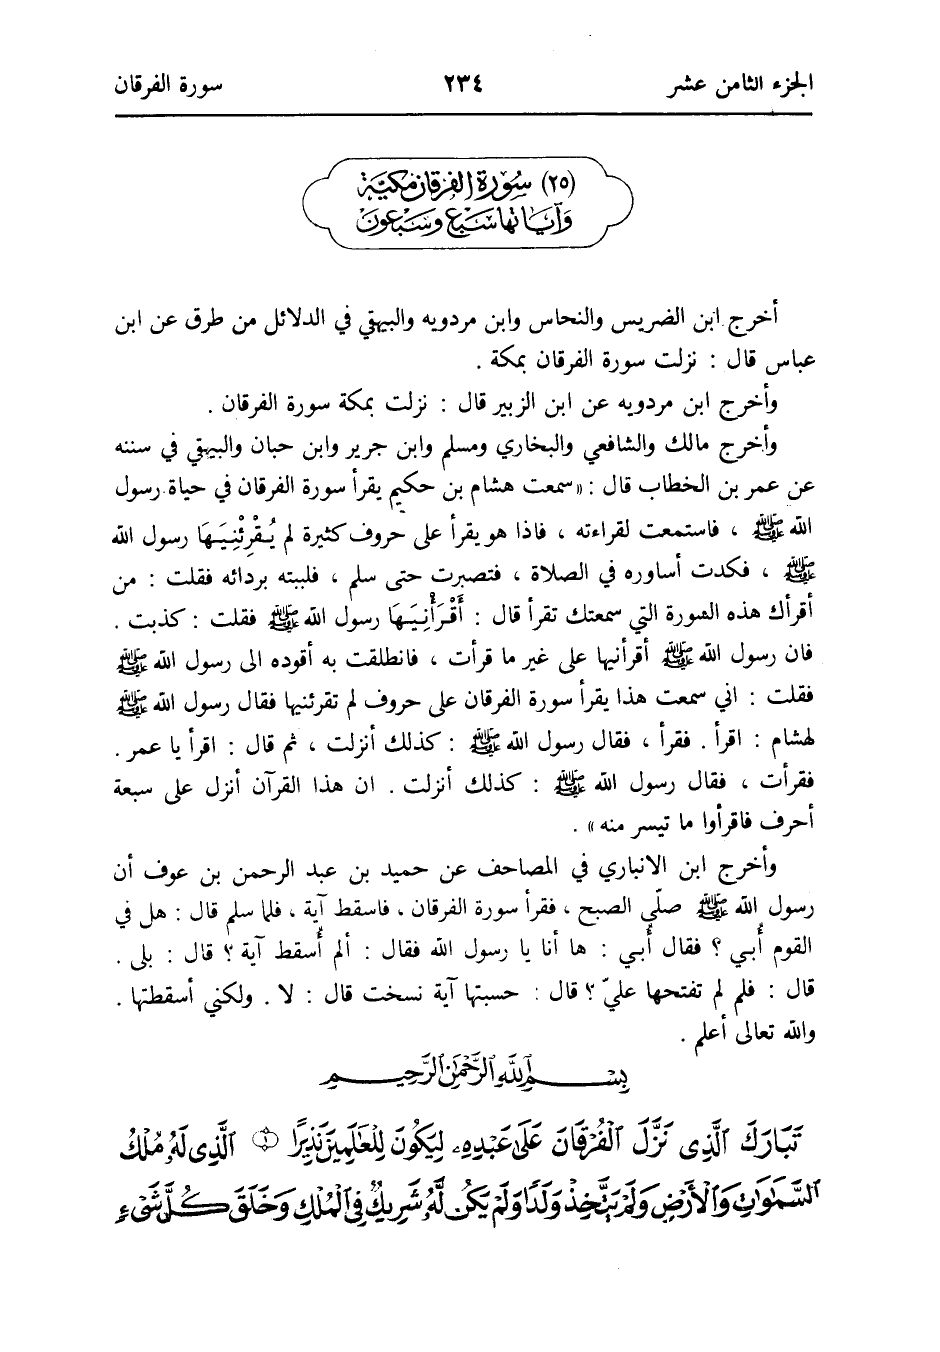 الجزء الثامن عشر ٢٣٤ سورة الفرقان
(٢٥) سورة الفرقان مكية
وآياتها سبع وسبعون
أخرج ابن الضريس والنحاس وابن مردويه والبيهقي في الدلائل من طرق عن ابن
عباس قال : نزلت سورة الفرقان بمكة .
وأخرج ابن مردويه عن ابن الزبير قال : نزلت بمكة سورة الفرقان .
وأخرج مالك والشافعي والبخاري ومسلم وابن جرير وابن حبان والبيهقي في سننه
عن عمر بن الخطاب قال : «سمعت هشام بن حكيم يقرأ سورة الفرقان في حياة رسول
الله ﷺ ، فاستمعت لقراءته ، فاذا هو يقرأ على حروف كثيرة لم يُـقْرِئْنِيـَهَا رسول الله
ﷺ ، فكدت أساوره في الصلاة ، فتصبرت حتى سلم ، فلببته بردائه فقلت : من
أقرأك هذه السورة التي سمعتك تقرأ قال : أَقْـرَأَنِيـَهَا رسول الله ﷺ فقلت : كذبت .
فان رسول الله ﷺ أقرأنيها على غير ما قرأت ، فانطلقت به أقوده الى رسول الله ﷺ
فقلت : اني سمعت هذا يقرأ سورة الفرقان على حروف لم تقرئنيها فقال رسول الله ﷺ
لهشام : اقرأ . فقرأ ، فقال رسول الله ﷺ : كذلك أنزلت ، ثم قال : اقرأ يا عمر .
فقرأت ، فقال رسول الله ﷺ : كذلك أنزلت . ان هذا القرآن أنزل على سبعة
أحرف فاقرأوا ما تيسر منه» .
وأخرج ابن الانباري في المصاحف عن حميد بن عبد الرحمن بن عوف أن
رسول الله ﷺ صلّى الصبح ، فقرأ سورة الفرقان ، فاسقط آية ، فلما سلم قال : هل في
القوم أُبـي ؟ فقال أُبـي : ها أنا يا رسول الله فقال : ألم أُسقط آية ؟ قال : بلى .
قال : فلم لم تفتحها عليّ ؟ قال : حسبتها آية نسخت قال : لا . ولكني أسقطتها .
والله تعالى أعلم .
بِسْمِ ٱللَّهِ ٱلرَّحْمَٰنِ ٱلرَّحِيمِ
تَبَارَكَ ٱلَّذِى نَزَّلَ ٱلْفُرْقَانَ عَلَىٰ عَبْدِهِۦ لِيَكُونَ لِلْعَٰلَمِينَ نَذِيرًا ١ ٱلَّذِى لَهُۥ مُلْكُ
ٱلسَّمَٰوَٰتِ وَٱلْأَرْضِ وَلَمْ يَتَّخِذْ وَلَدًا وَلَمْ يَكُن لَّهُۥ شَرِيكٌ فِى ٱلْمُلْكِ وَخَلَقَ كُلَّ شَىْءٍ